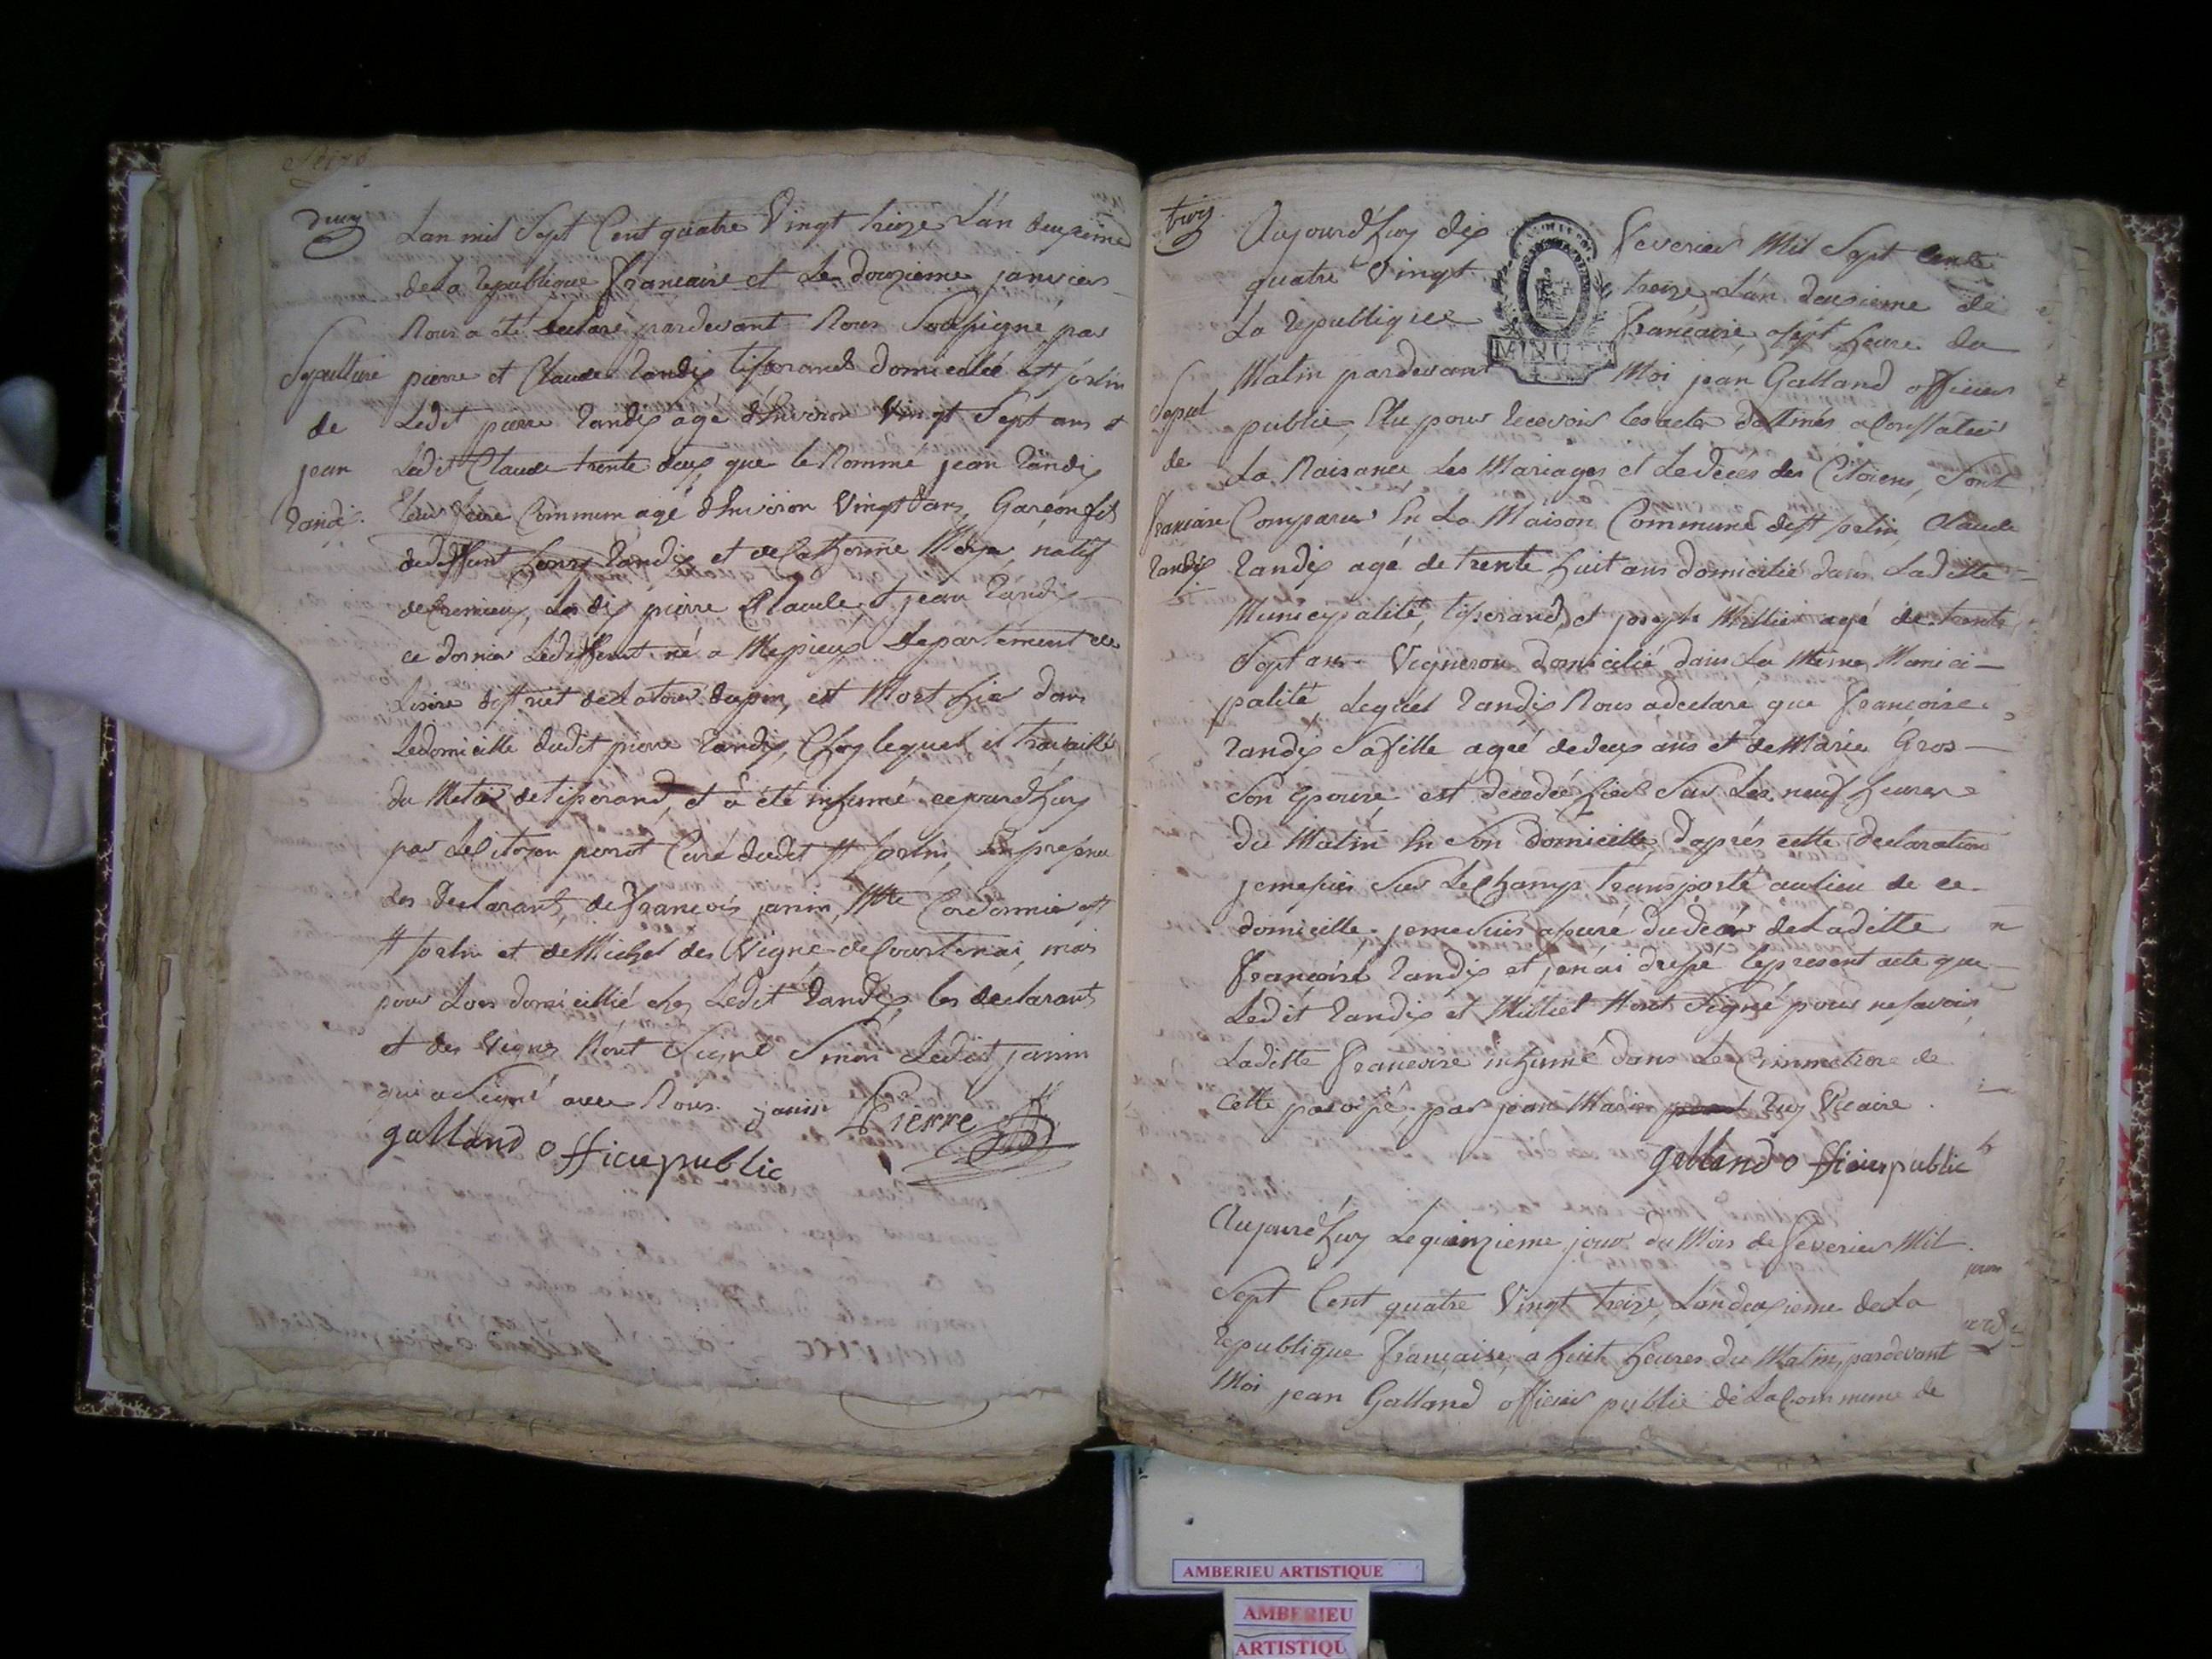 deux
Lan mil Sept Cent quatre Vingt treize Lan deuxieme
de La republique francaise et Le douzieme janvier
Nous a été declaré pardevant Nous Soussigné, par
Sepulture
de
jean
Randy.
pierre et Claude Randy tisserands domicilié a St sorlin
Ledit pierre Randy agé d'Environ Vingt Sept ans et
Ledit Claude trente deux que le Nommé jean Randy
leur frere Commun agé d'Environ Vingt ans, Garçon fils
de deffunt Randy et de Catherine natif
de Cremieux, Les dis pierre Claude et jean Randy
ce dernier Ledeffunt né a Mepieux departement de
Lisere district de La tour dupin, est Mort hier dans
Ledomicille dudit pierre Randy, Chez lequel il travaillé
du Metier de tisserand, et a été inhumé cejourdhuy
par Le Citoyen perrot Curé dudit St sorlin, En presence
des declarants, de francois janin, Mtre Cordonnier
St sorlin et de Michel des Vigne de Courtenai, mais
pour Lors domicillié chez Ledit Randy, les declarants
et des Vignes N'ont Signé Sinon Ledit janin
qui a Signé avec Nous. janin Pierre
galland officier public
trois
Aujourdhuy dix feverier Mil Sept Cents
quatre Vingt treize Lan deuxieme de
La republique francaise, a sept heure du
MINUTE
Matin pardevant Moi jean Galland officier
Sepul
de
francoise
Randy
public, Elu pour recevoir les actes destinés a Constater
La Naisance Les Mariages et Le déces des Citoiens, Sont
Comparus En La Maison Commune de St sorlin, Claude
Randy agé de trente huit ans domicilié dans Laditte
Municipalité, tisserand, et joseph Milliet agé de trente
Sept ans Vigneron domicilié dans La Meme Munici-
palité, Lequel Randy Nous adeclaré que francoise
Randy Safille ageé dedeux ans et de Marie Gros
Son Epouse est décedée hier Sur Les neuf heures
du Matin En Son domicille, daprés cette declaration
jemesuis Sur Le Champ transporté au lieu de ce
domicille. jeme Suis assuré du déces de Laditte
francoise Randy et jen ai dressé le present acte que
Ledit Randy et Milliet Nont Signé pour ne savoir,
Laditte francoise inhumé dans Le Cimmetiere de
cette paroisse, par jean Marie Ruy Vicaire.
galland officier public
Aujourdhuy Lequinzieme jour du Mois de feverier Mil
Sept Cent quatre Vingt treize, Lan deuxieme de La
republique francaise, a huit heures du Matin, pardevant
Moi jean Galland officier public de La Commune de
AMBERIEU ARTISTIQUE
AMBERIEU
ARTISTIQU